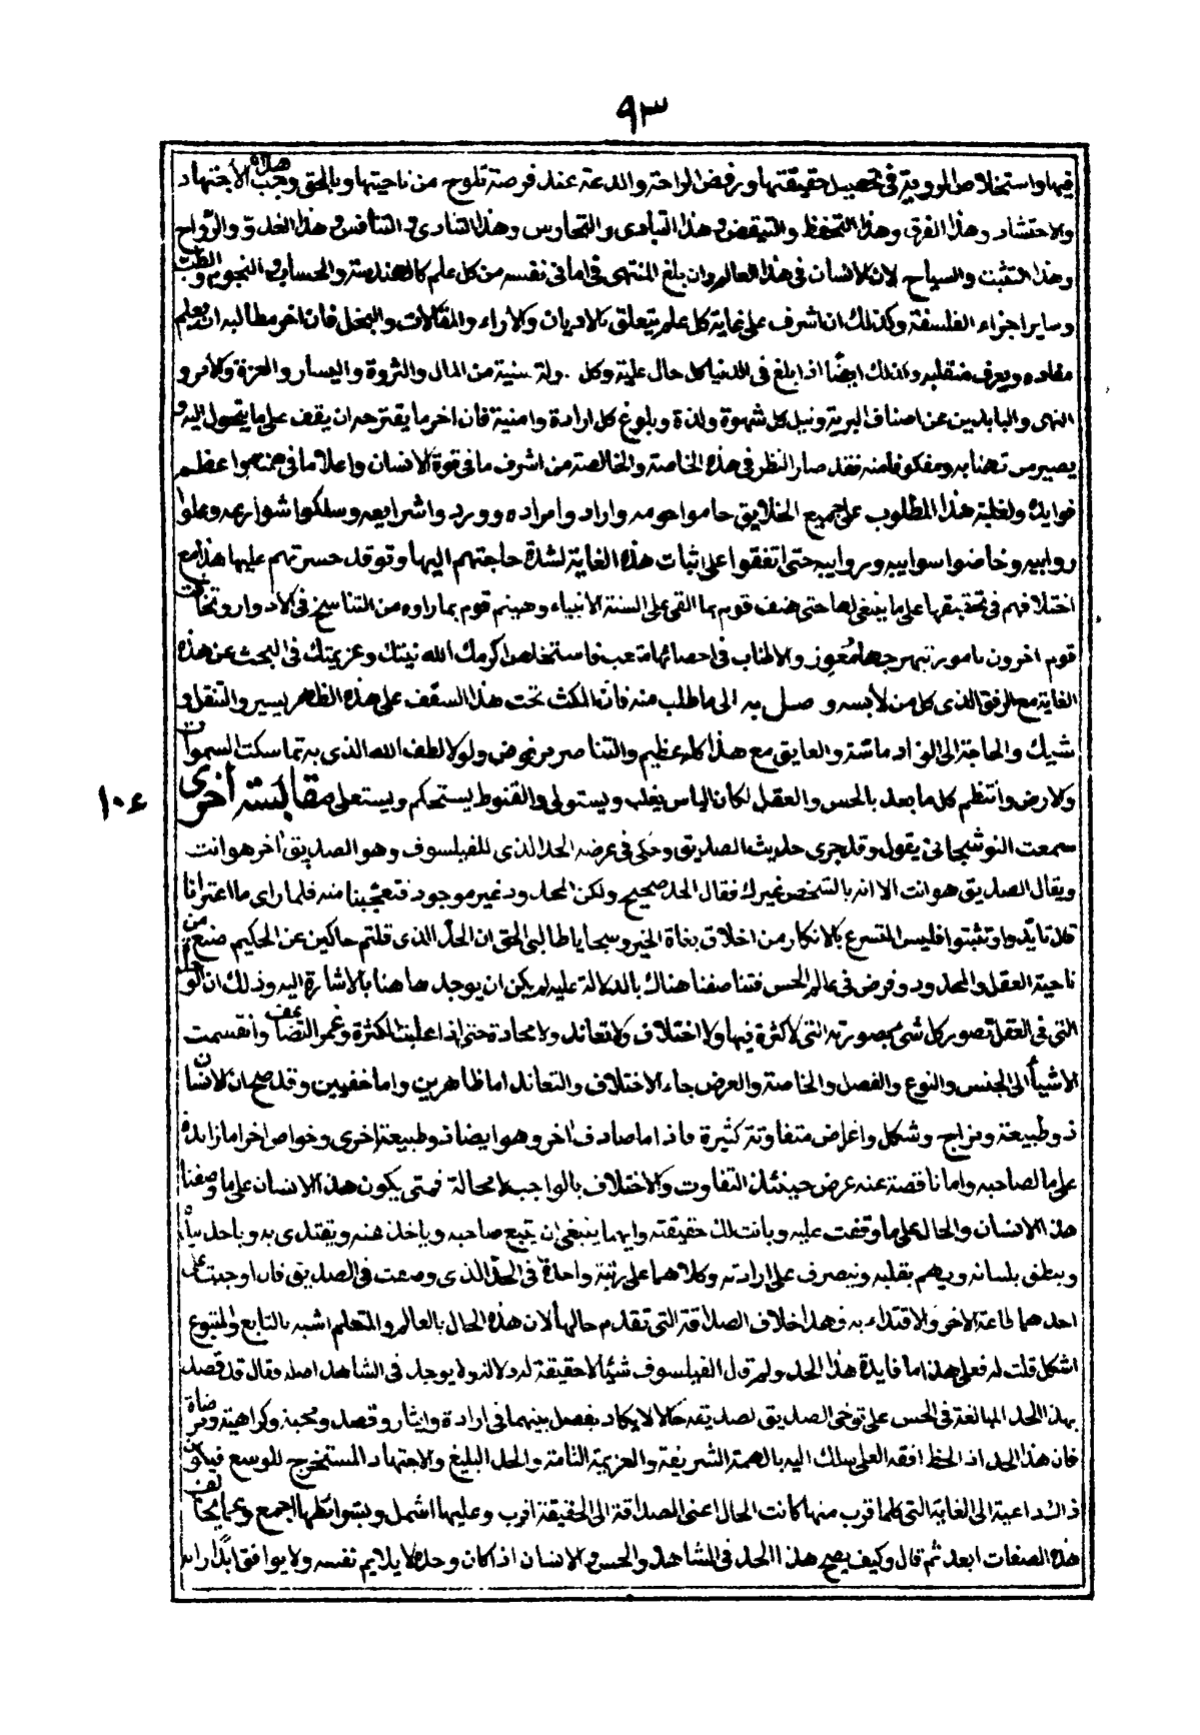 ٩٣
فيها واستخلاص الروية في تحصيل حقيقتها ورفض الراحة والدعة عند فرصة تلوح من ناحيتها وبالحق وجب هذا الاجتهاد
والاحتشاد وهذا الفرق وهذا التحفظ والتيقض وهذا التبادى والتحارس وهذا التنادى والتنافس وهذا الغدو والرواح
وهذا التثبت والسياح لان الانسان في هذا العالم وان بلغ المنتهى في امانى نفسه من كل علم كالهندسة والحساب والنجوم والطب
وساير اجزاء الفلسفة وكذلك ان اشرف على نهاية كل علم يتعلق بالاديان والاراء والمقالات والنحل فان اخر مطالبه ان يعلم
معاده ويعرف منقلبه وكذلك ايضا اذا بلغ في الدنيا كل حال علية وكل ولة سنية من المال والثروة واليسار والعزة والامر و
النهى والبايدين عن اصناف البرية ونيل كل شهوة ولذة وبلوغ كل ارادة وامنية فان اخر ما يقترحه ان يقف على ما يتحول اليه و
يصير من تهنا به ومفكوفا منه فقد صار النظر في هذه الخاصة والخالصة من اشرف ما في قوة الانسان واعلاما في واعظم
فوايده ولغلبة هذا المطلوب على جميع الخلايق حاموا حومه واراد وامراده ووردوا شرايعه وسلكوا شوارعه وعلوا
روابيه وخاضوا سوابيه وروابيه حتى اتفقوا على اثبات هذه الغاية لشدة حاجتهم اليها وتوقد حسرتهم عليها هذا مع
اختلافهم في تحقيقها على ما ينبغى لها حتى هتف قوم بما القى على السنة الانبياء وهينم قوم بما راوه من التناسخ في الادوار وتخافت
قوم اخرون بامور تبهرجها معوز والاطناب في احصائها متعب فاستخلص اكرمك الله نيتك وعزيمتك في البحث عن هذه
الغاية مع الرفق الذى كل من لابسه وصل به الى ما طلب منه فان المكث تحت هذا السقف على هذه الظهر يسير والتنقل و
شيك والحاجة الى الزاد ماسة والعايق مع هذا كله عظيم والتناصر مرفوض ولولا لطف الله الذى به تماسكت السموات
والارض وانتظم كل ما بعد بالحس والعقل لكان الياس يغلب ويستولى والقنوط يستحكم ويستعلى مقابسة أخرى
١٠٤
سمعت النوشجانى يقول وقد جرى حديث الصديق وحكى في عرضه الحد الذى للفيلسوف وهو الصديق آخر هو انت
ويقال الصديق هو انت الا انه بالشخص غيرك فقال الحد صحيح ولكن المحدود غير موجود فتعجبنا منه فلما راى ما اعترانا
قال تايدوا وتثبتوا فليس التسرع بالانكار من اخلاق بغاة الخير وسجايا طالبى الحق ان الحد الذى قلتم حاكين عن الحكيم صنع من
ناحية العقل والمحدود وفرض في عالم الحس فتناصفنا هناك بالدلالة عليه لم يكن ان يوجد هاهنا بالاشارة اليه وذلك ان الوحدة
التى في العقل تصور كل شئ بصورته التى لا كثرة فيها ولا اختلاف ولا تعاند ولا محادة حتى اذا علبت الكثرة وغمر التضاعف وانقسمت
الاشيأ الى الجنس والنوع والفصل والخاصة والعرض جاء الاختلاف والتعاند اما ظاهرين واما خفيين وقد صح ان الانسان
ذو طبيعة ومزاج وشكل واعراض متفاوتة كثيرة فاذا ما صادف آخر وهو ايضا ذو طبيعة اخرى وخواص اخر اما زايدة
على ما لصاحبه واما ناقصة عنه عرض حينئذ التفاوت والاختلاف بالواجب لا محالة فمتى يكون هذا الانسان على ما وصفنا
هذا الانسان والحال على ما وقفت عليه وبانت لك حقيقته وايهما ينبغى ان يتبع صاحبه وياخذ هنه ويقتدى به وياخذ بيا
وينطق بلسانه ويهم بقلبه ويتصرف على ارادته وكلاهما على رتبة واحدة في الحد الذى وصعت في الصديق فان اوجبت على
احدهما طاعة الاخر والاقتداء به فهذا خلاف الصداقة التى تقدم حالها لان هذه الحال بالعالم والمتعلم اشبه بالتابع والمتبوع
اشكل قلت له فعلى هذا ما فايدة هذا الحد ولم قال الفيلسوف شيئا لا حقيقة له ولا يوجد في الشاهد اصله فقال قد قصد
بهذا الحد المبالغة في الحس على توخى الصديق لصديقه حالا لا يكاد يفصل بينهما في ارادة وايثار وقصد ومحبة وكراهية ومرضاة
فان هذا الحد اذ الحظ افقه العلى سلك اليه بالهمة الشريفة والعزيمة التامة والحد البليغ والاجتهاد المستخرج للوسع فيكون
ذاك داعية الى الغاية التى كلما قرب منها كانت الحال اعنى الصداقة الى الحقيقة اقرب وعليها اشمل وبشوائطها اجمع وعما يخالف
هذه الصفات ابعد ثم قال وكيف يصح هذا الحد في الشاهد والحس والانسان اذ كان وحده لا يلايم نفسه ولا يوافق ابدا راى